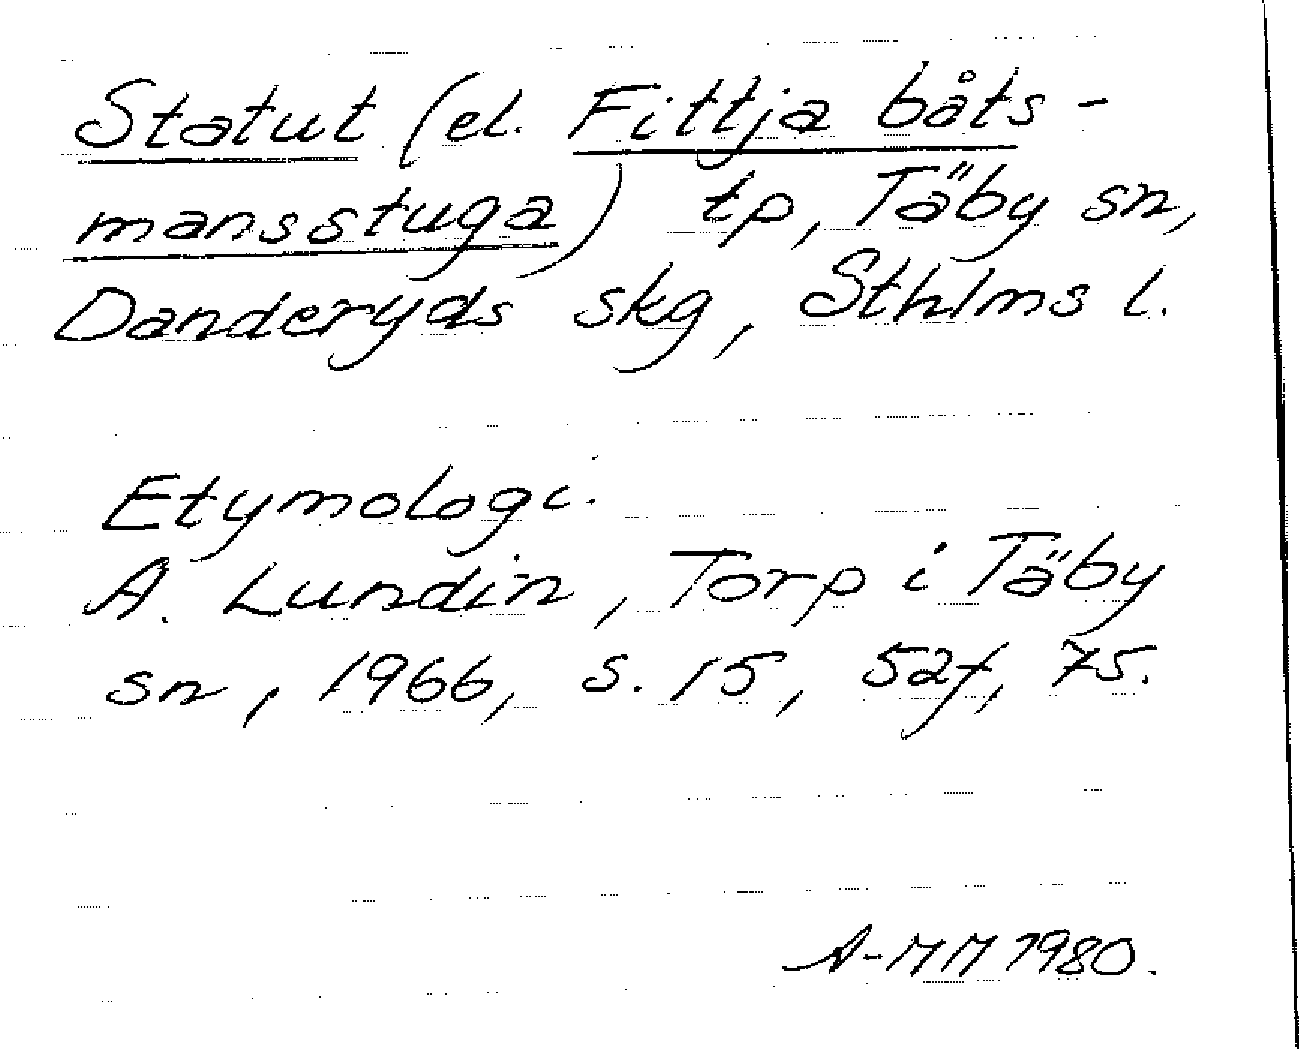 Statut (el. Fittja båts-
mansstuga) tp, Täby sn,
Danderyds skg, Sthlms l.
Etymologi.
A. Lundin, Torp i Täby
sn, 1966, s. 15, 52f, 75.
A-MM 1980.